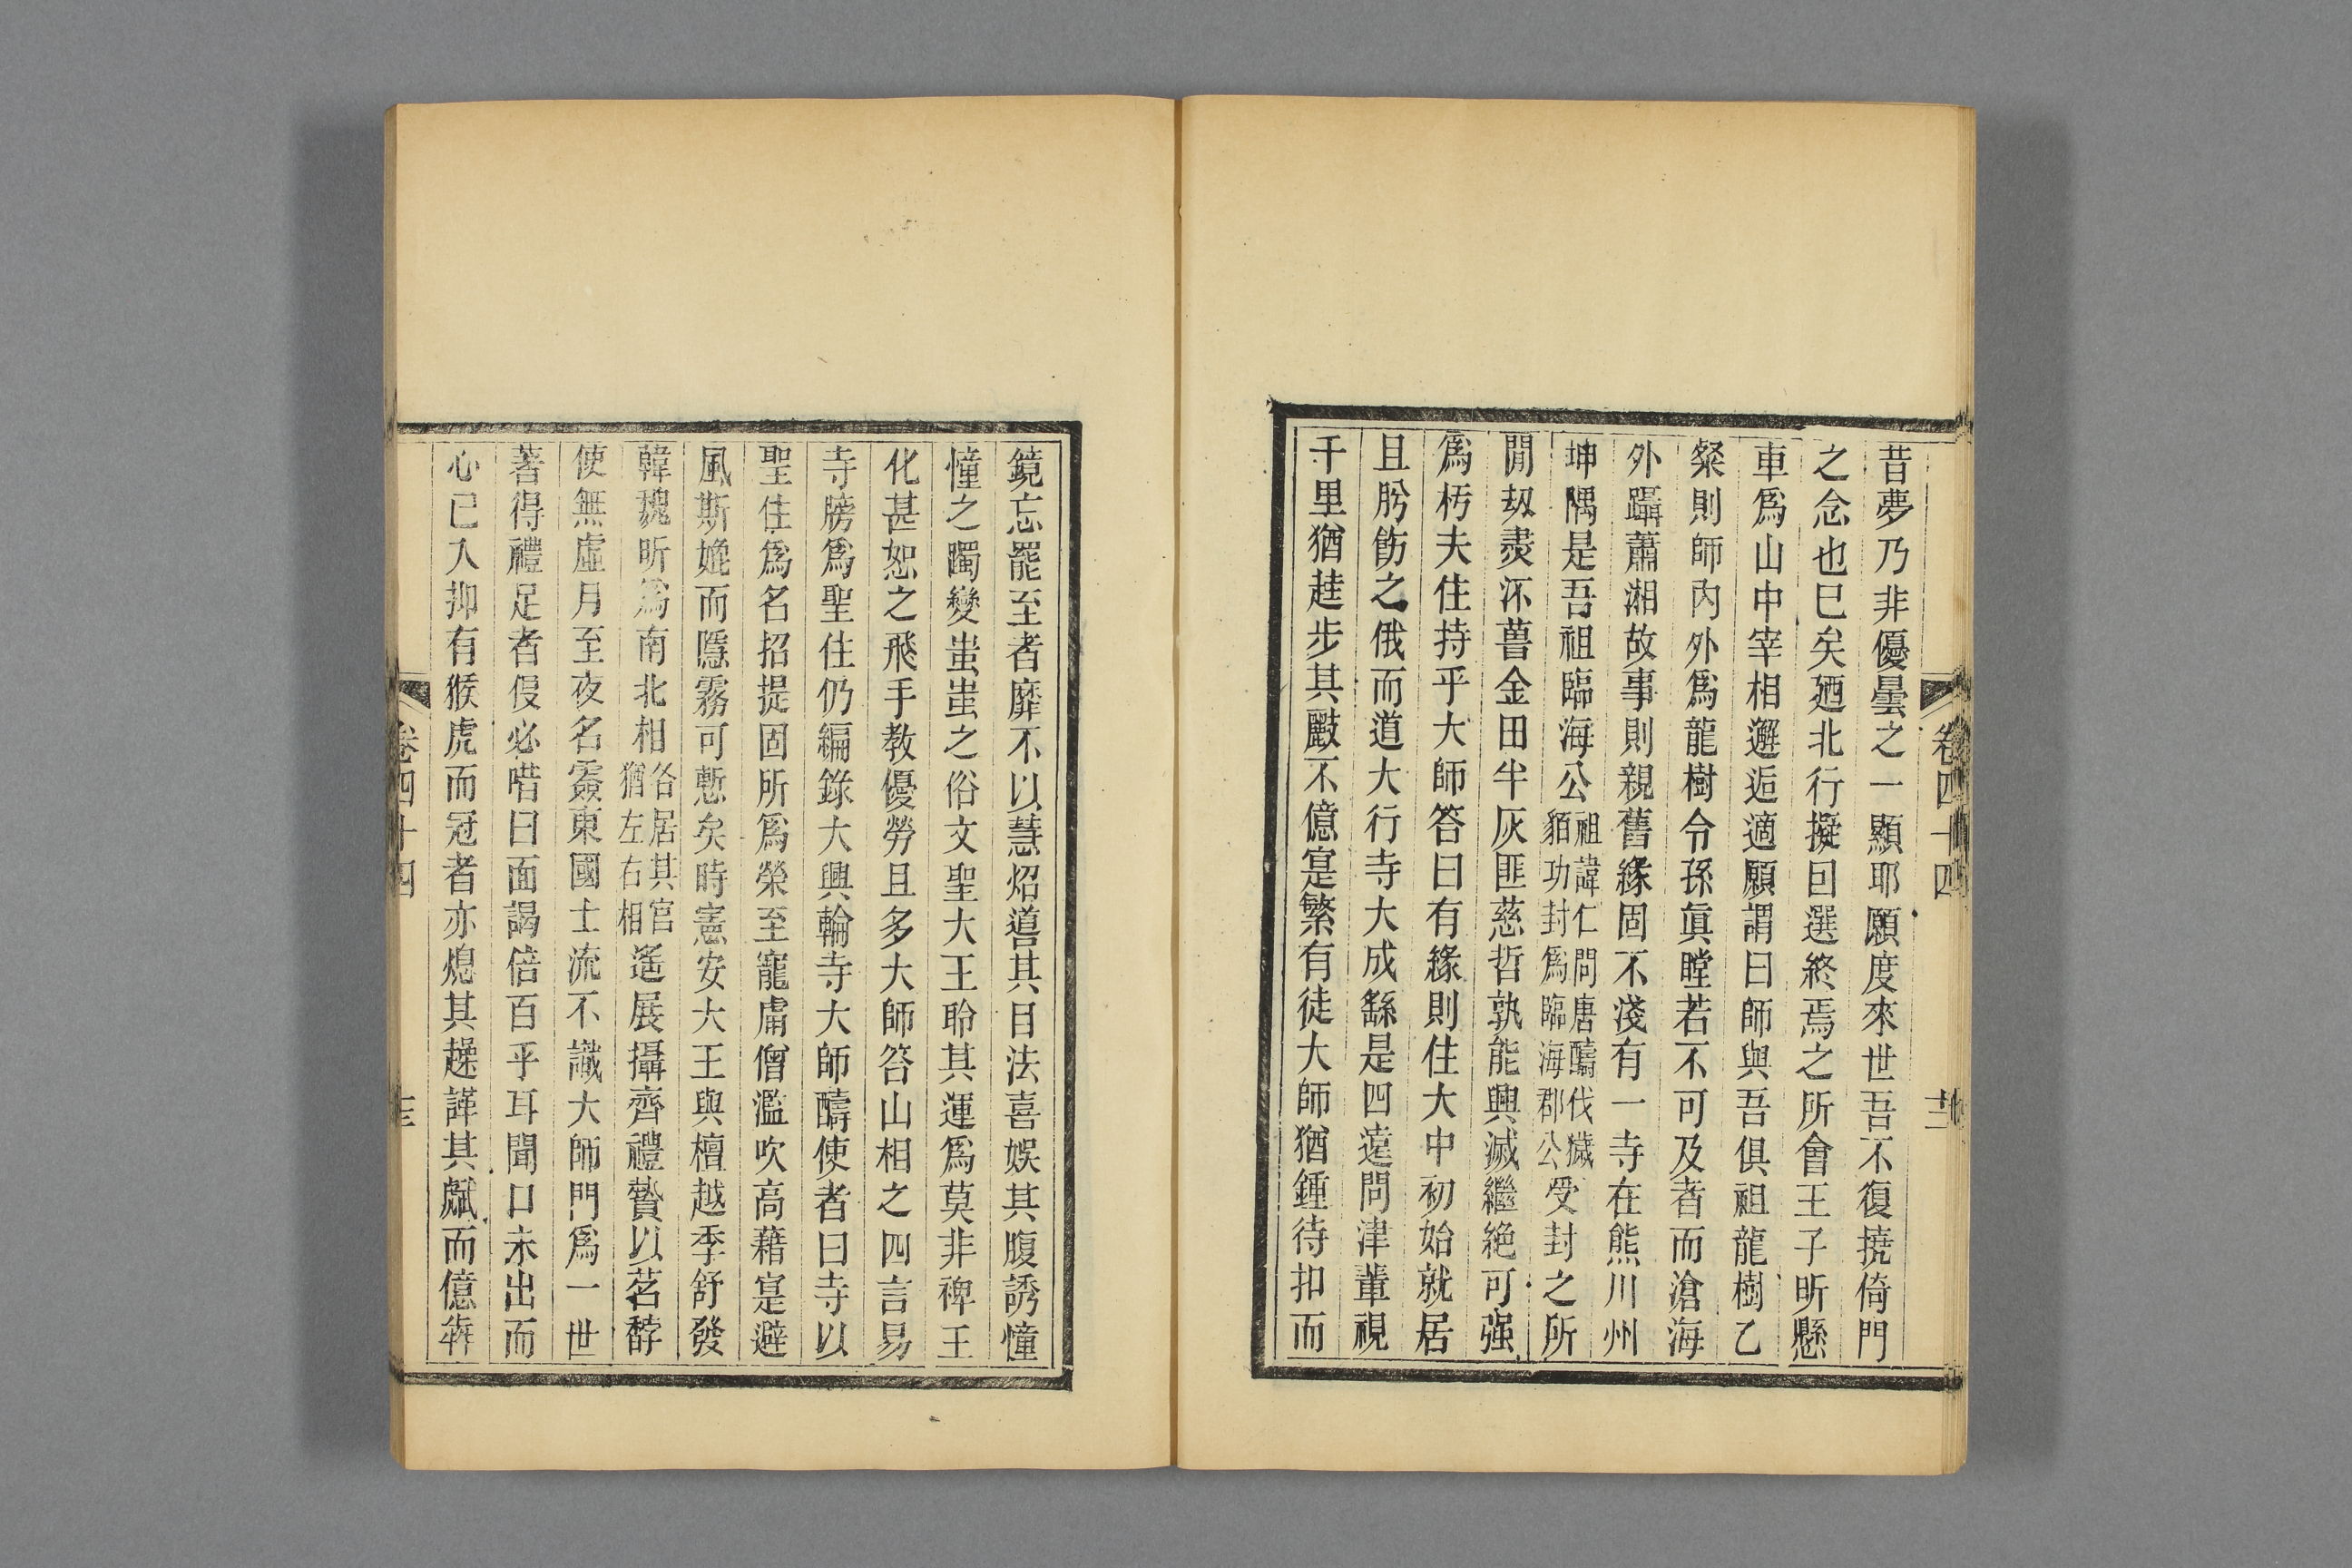 昔夢乃非優曇之一顯耶願度來世吾不復撓倚門
之念也已矣廼北行擬目選終焉之所會王子昕懸
車爲山中宰相邂逅適願謂曰師與吾俱祖龍樹乙
粲則師內外爲龍樹令孫眞瞠若不可及者而滄海
外躡蕭湘故事則親舊緣固不淺有一寺在熊川州
坤隅是吾祖臨海公祖諱仁問唐醻伐獩貊功封爲臨海郡公受封之所
閒刼㶳㳅菑金田半灰匪慈哲孰能興滅繼絶可强
爲杇夫住持乎大師答曰有緣則住大中初始就居
且肹飭之俄而道大行寺大成繇是四遠問津輩視
千里猶跬步其䴡不億寔繁有徒大師猶鍾待扣而
鏡忘罷至者靡不以慧炤導其目法喜娛其腹誘憧
憧之躅變蚩蚩之俗文聖大王聆其運爲莫非裨王
化甚恕之飛手教優勞且多大師答山相之四言易
寺牓爲聖住仍編錄大興輪寺大師醻使者曰寺以
聖住爲名招提固所爲榮至寵庸僧濫吹高藉寔避
風斯媲而隱霧可慙矣時憲安大王與檀越季舒發
韓魏昕爲南北相各居其官猶左右相遙展攝齊禮贄以茗馞
使無虛月至夜名霑東國士流不識大師門爲一世
羞得禮足者退必唶曰面謁倍百乎耳聞口未出而
心已入抑有猴虎而冠者亦熄其趮譁其虣而億犇
卷四十四
卷四十四